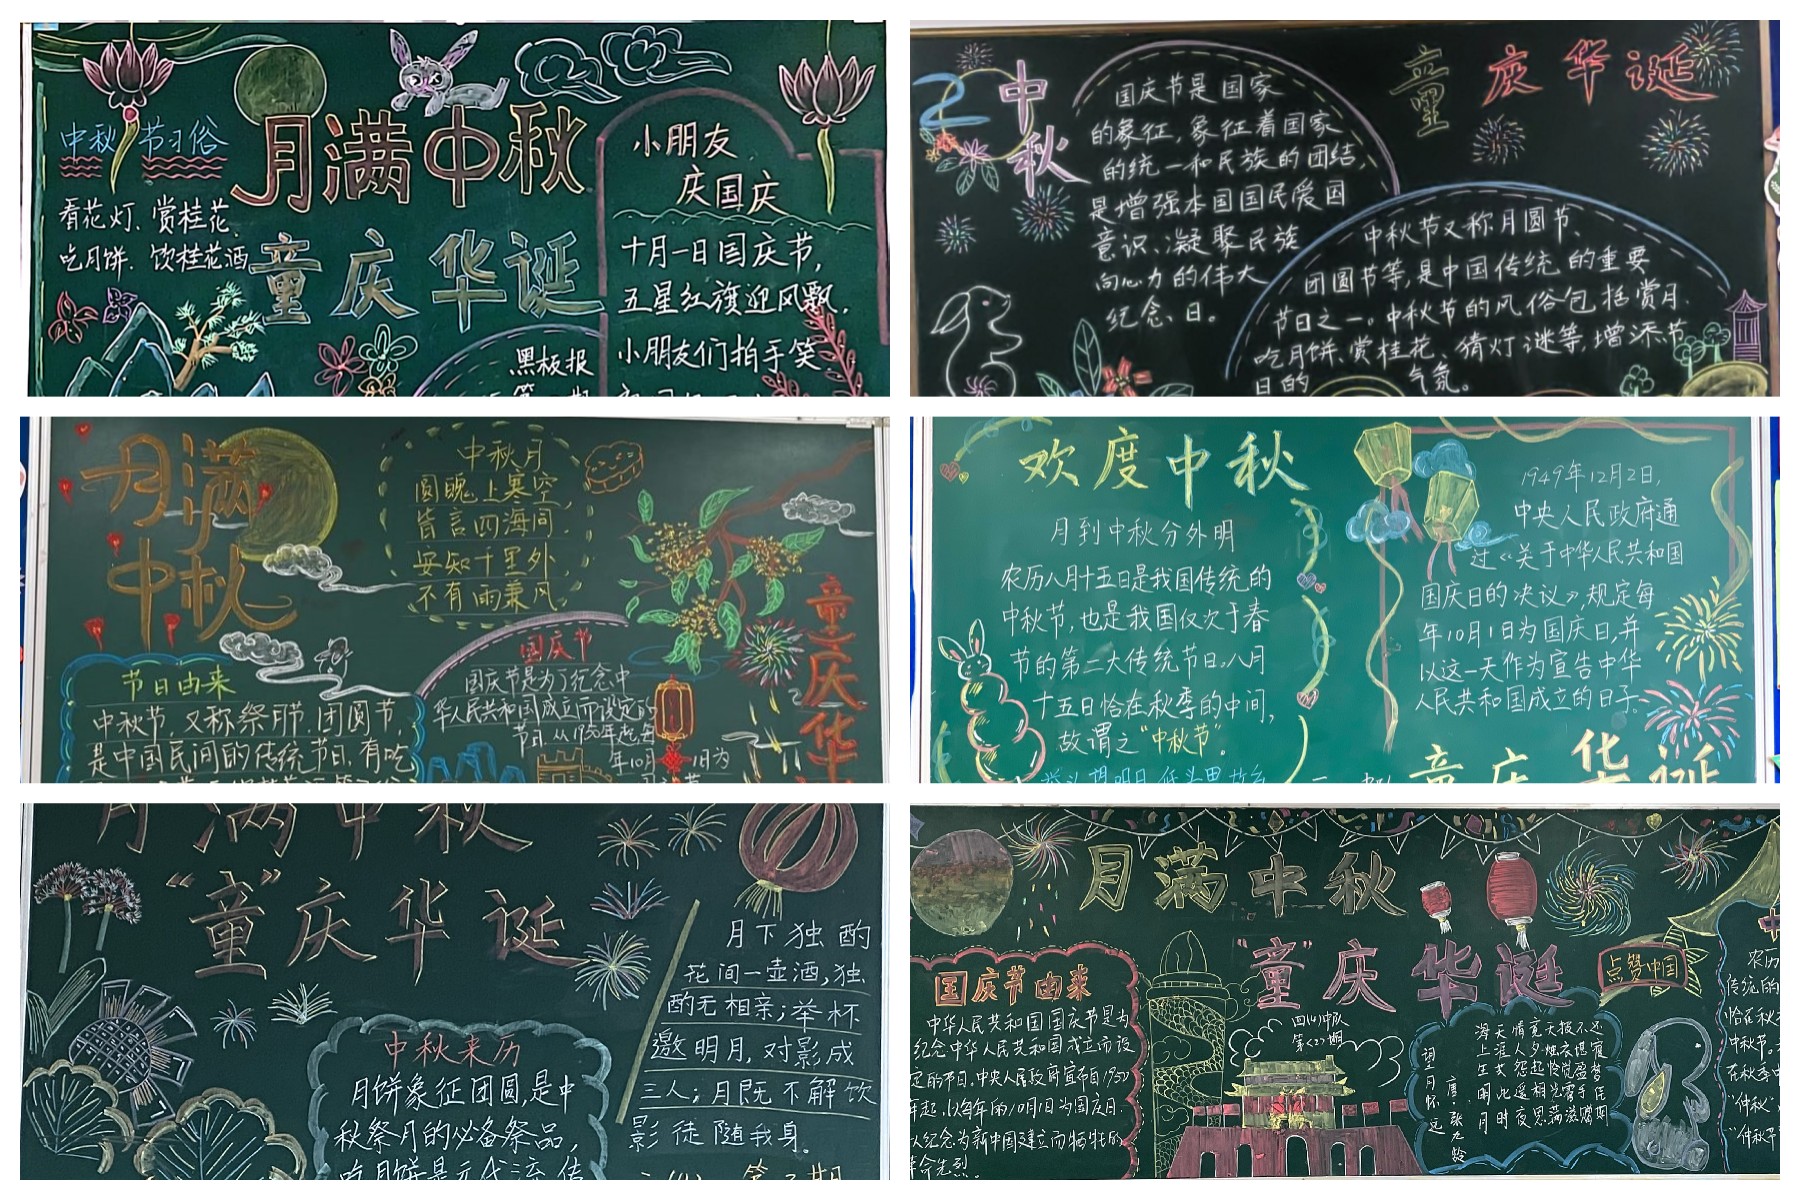 中秋节习俗
看花灯、赏桂花、
吃月饼、饮桂花酒
月满中秋
童庆华诞
黑板报
小朋友
庆国庆
十月一日国庆节,
五星红旗迎风飘.
小朋友们拍手笑
中秋
国庆节是国家
的象征,象征着国家
的统一和民族的团结,
是增强本国国民爱国
意识、凝聚民族
向心力的伟大
纪念、日。
童庆华诞
中秋节又称月圆节、
团圆节等,是中国传统的重要
节日之一。中秋节的风俗包括赏月、
吃月饼、赏桂花、猜灯谜等,增添节
日的气氛。
月满
中秋
中秋月
圆魄上寒空,
皆言四海同.
安知千里外,
不有雨兼风.
节日由来
中秋节,又称祭月节、团圆节,
是中国民间的传统节日,有吃
国庆节
国庆节是为了纪念中
华人民共和国成立而设定的
年10月1日为
童庆华
欢度中秋
月到中秋分外明
农历八月十五日是我国传统的
中秋节,也是我国仅次于春
节的第二大传统节日。八月
十五日恰在秋季的中间,
故谓之“中秋节”。
举头望明月,低头思故乡
1949年12月2日,
中央人民政府通
过《关于中华人民共和国
国庆日的决议》,规定每
年10月1日为国庆日,并
以这一天作为宣告中华
人民共和国成立的日子。
童庆华诞
月满中秋
“童”庆华诞
中秋来历
月饼象征团圆,是中
秋祭月的必备祭品,
月下独酌
花间一壶酒,独
酌无相亲;举杯
邀明月,对影成
三人;月既不解饮
影徒随我身.
月满中秋
“童”庆华诞
国庆节由来
中华人民共和国国庆节是为
纪念中华人民共和国成立而设
定的节日.中央人民政府宣布自1950
年起,以每年的10月1日为国庆日.
人纪念为新中国建立而牺牲的
革命先烈.
四(4)中队
第<2>期
点赞中国
望月怀远
唐·张九龄
海上生明月
天涯共此时
情人怨遥夜
竟夕起相思
灭烛怜光满
披衣觉露滋
不堪盈手赠
还寝梦佳期
农历
传统的
恰在秋
中秋节.
在秋季
“仲秋”